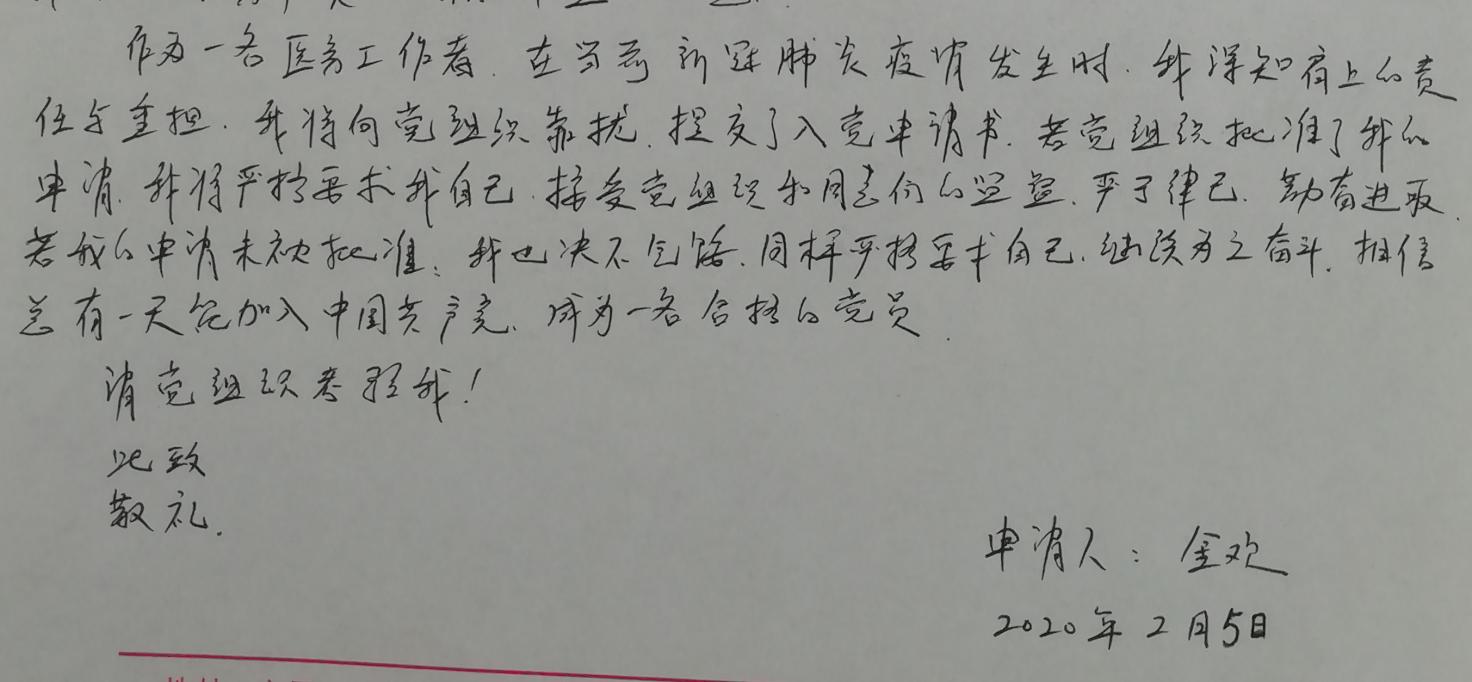 作为一名医务工作者，在当前新冠肺炎疫情发生时，我深知肩上的责
任与重担，我将向党组织靠拢，提交了入党申请书，若党组织批准了我的
申请，我将严格要求我自己，接受党组织和同志们的监督，严于律己，勤奋进取，
若我的申请未被批准，我也决不气馁，同样严格要求自己，继续为之奋斗，相信
总有一天能加入中国共产党，成为一名合格的党员。
请党组织考验我！
此致
敬礼。
申请人：金欢
2020年2月5日